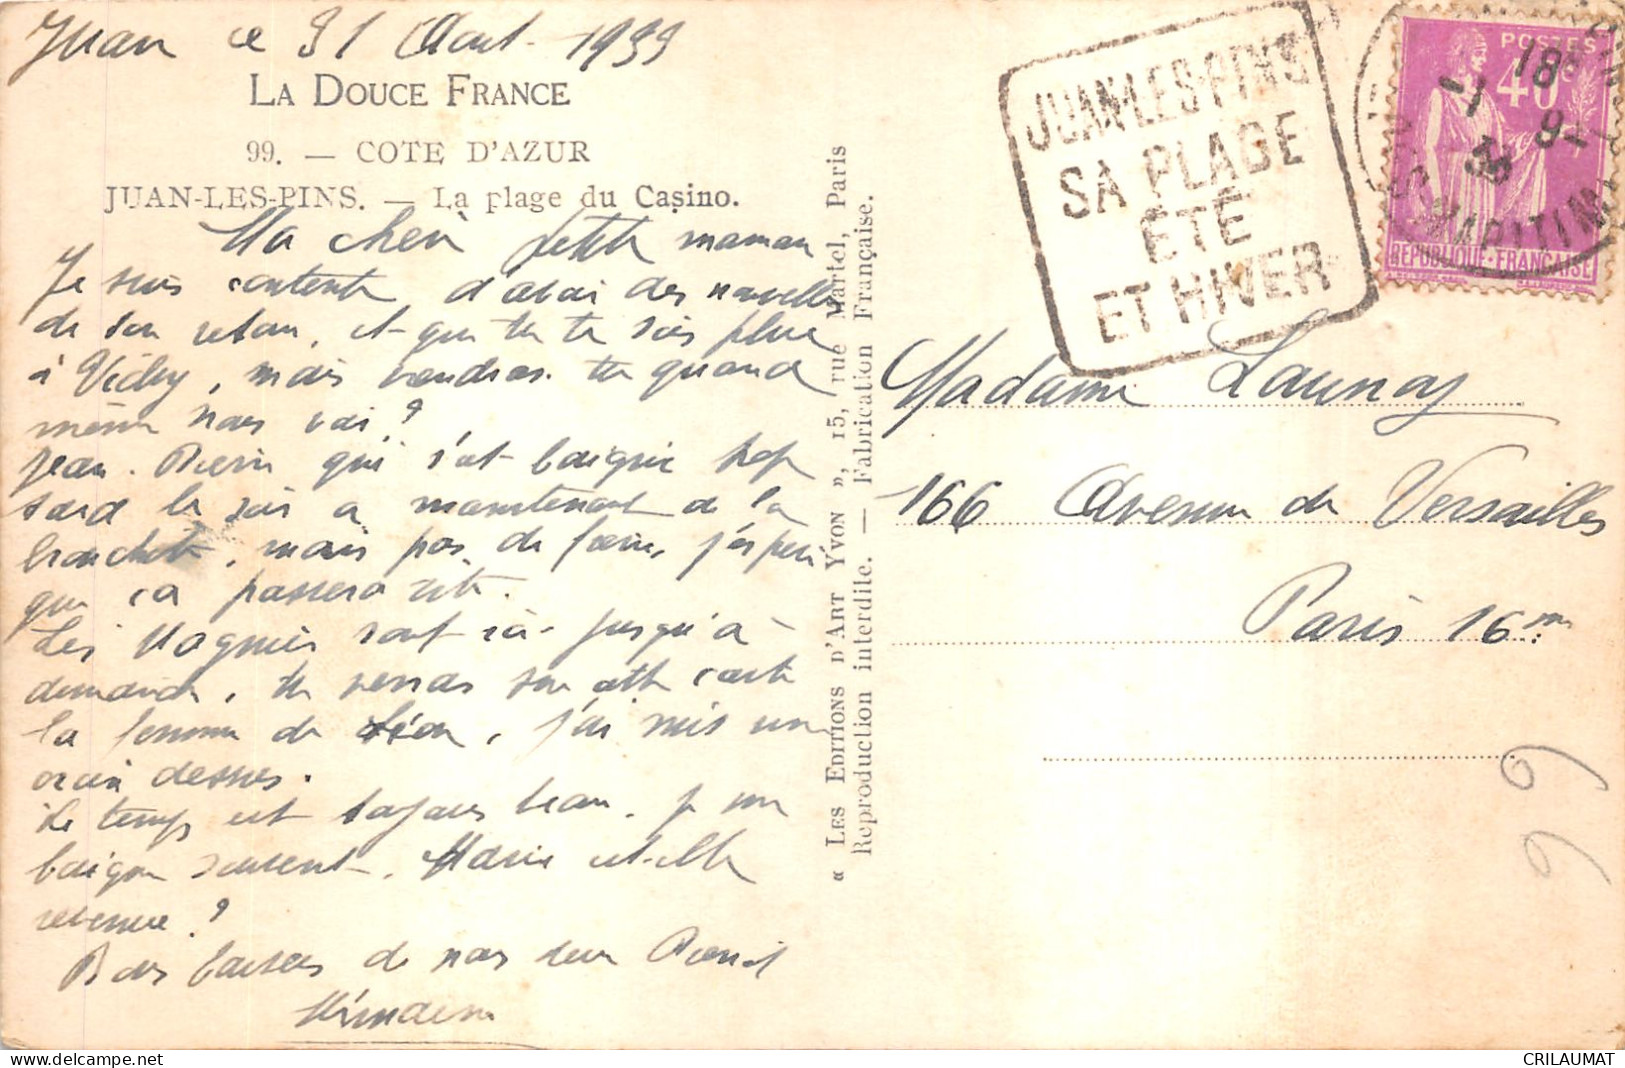 Juan ce 31 Août 1933
LA DOUCE FRANCE
99. — COTE D'AZUR
JUAN-LES-PINS. — La plage du Casino.
Ma chère petite maman
Je suis contente d'avoir des nouvelles
de ton retour, et que tu te sois plue
à Vichy, mais voudras tu quand
même nous voir ?
Jean. Pierre qui s'est baigné trop
tard le soir a maintenant de la
bronchite, mais pas de fièvre, j'espère
que ça passera vite.
Les Magnier sont ici jusqu'à
dimanche, tu verras sur cette carte
la femme de Léon, j'ai mis une
croix dessus.
Le temps est toujours beau, je me
baigne souvent. Marie est-elle
revenue ?
Bons baisers de nous deux
« LES EDITIONS D'ART YVON », 15, rue Martel, Paris
Reproduction interdite. — Fabrication Française.
JUAN-LES-PINS
SA PLAGE
ÉTÉ
ET HIVER
POSTES
40c
RÉPUBLIQUE-FRANÇAISE
18
-1 9-
33
MARITIM
Madame Launay
166 Avenue de Versailles
Paris 16me
99
CRILAUMAT